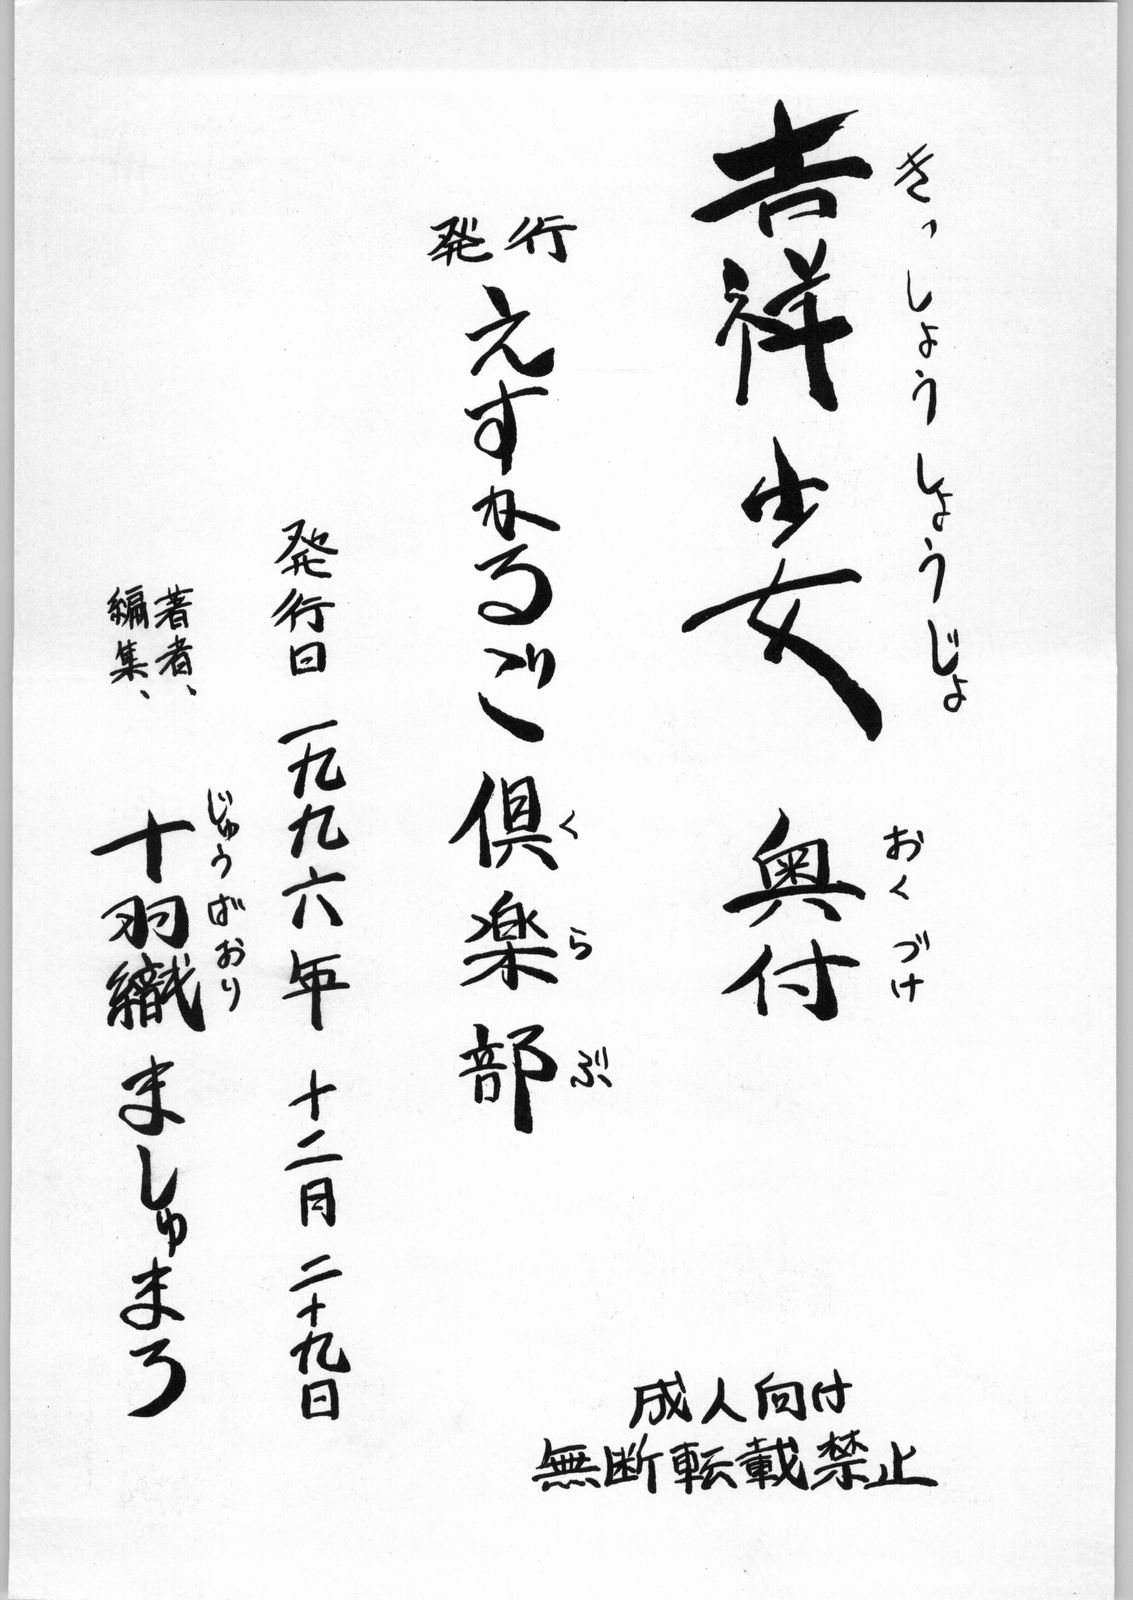 吉祥少女 奥付
きっしょうしょうじょ おくづけ
発行
えすかるご倶楽部
くらぶ
発行日 一九九六年 十二月 二十九日
著者、
編集、
十羽織ましゅまろ
じゅうばおり
成人向け
無断転載禁止